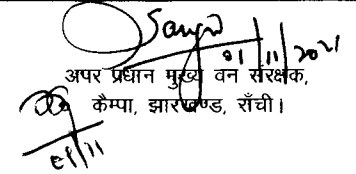 01/11/2021
अपर प्रधान मुख्य वन संरक्षक,
कैम्पा, झारखण्ड, राँची।
01/11